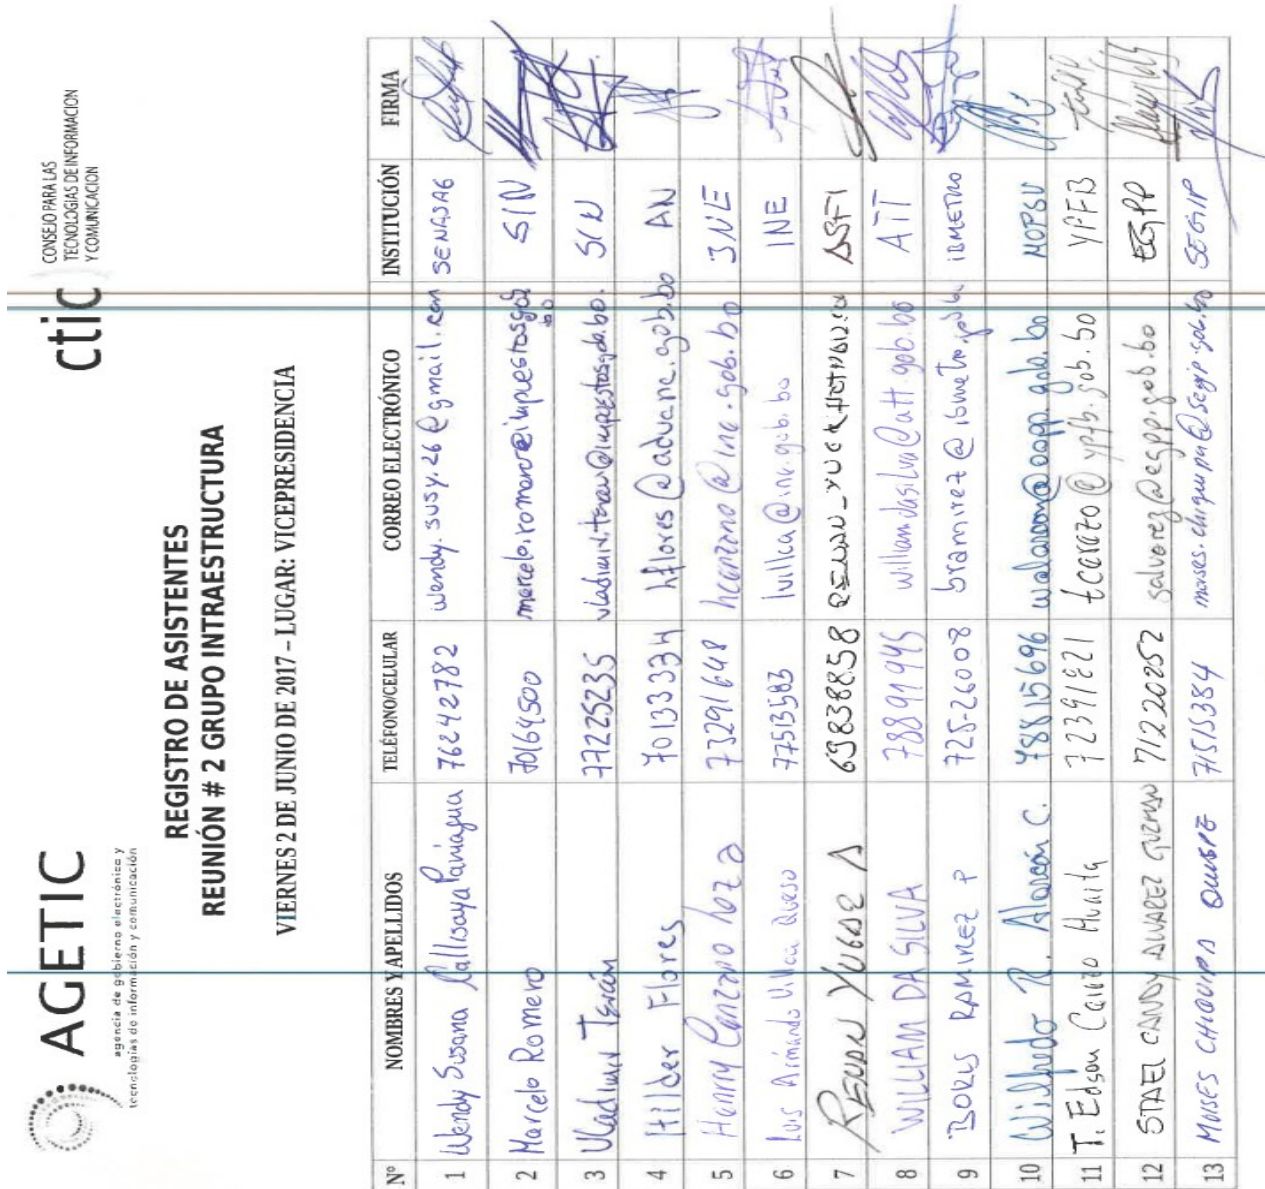 AGETIC
agencia de gobierno electrónico y
tecnologías de información y comunicación
ctic
CONSEJO PARA LAS
TECNOLOGIAS DE INFORMACION
Y COMUNICACION
REGISTRO DE ASISTENTES
REUNIÓN # 2 GRUPO INTRAESTRUCTURA
VIERNES 2 DE JUNIO DE 2017 – LUGAR: VICEPRESIDENCIA
Nº NOMBRES Y APELLIDOS TELÉFONO/CELULAR CORREO ELECTRÓNICO INSTITUCIÓN FIRMA
1 Wendy Susana Callisaya Paniagua 76242782 wendy.susy.26@gmail.com SENASAG
2 Marcelo Romero 70164500 marcelo.romero@impuestos.gob.bo SIN
3 Vladimir Terán 77225235 vladimir.teran@impuestos.gob.bo. SIN
4 Hilder Flores 70133334 hflores@aduana.gob.bo AN
5 Hanrry 73291648 @ine.gob.bo INE
6 Luis Armando Villca 77513583 lvillca@ine.gob.bo INE
7 69838858 ASFI
8 WILLIAM DA SILVA 78891945 william.dasilva@att.gob.bo ATT
9 BORIS RAMIREZ P 725-26008 bramirez@ibmetro.gob.bo IBMETRO
10 Wilfredo R. Alarcón C. 78815696 walarcon@oopp.gob.bo MOPSV
11 T. Edson Carazo Huaita 72391821 tcarazo@ypfb.gob.bo YPFB
12 STAEL CANDY ALVAREZ GUZMAN 71222052 salvarez@egpp.gob.bo EGPP
13 MOISES CHIQUIPA QUISPE 71513384 moises.chiquipa@segip.gob.bo SEGIP